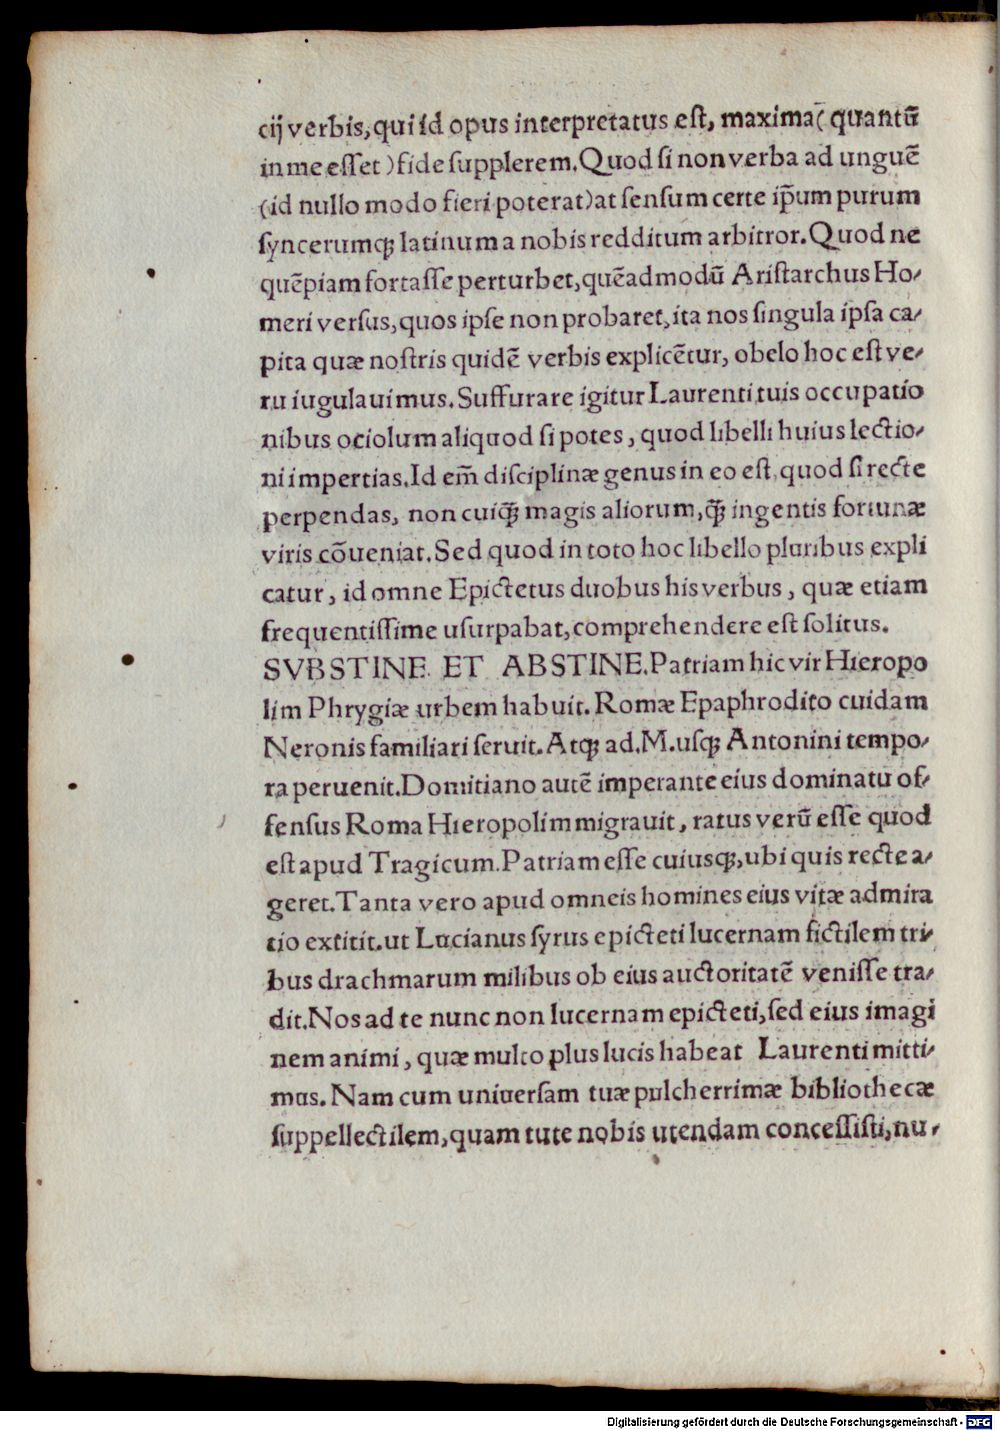 cij verbis, qui id opus interpretatus est, maxima( quantū
in me esset ) fide supplerem. Quod si non verba ad unguē
(id nullo modo fieri poterat)at sensum certe ip̄um purum
syncerumq; latinum a nobis redditum arbitror. Quod ne
quēpiam fortasse perturbet, quēadmodū Aristarchus Ho-
meri versus, quos ipse non probaret, ita nos singula ipsa ca-
pita quæ nostris quidē verbis explicētur, obelo hoc est ve-
ru iugulauimus. Suffurare igitur Laurenti tuis occupatio
nibus ociolum aliquod si potes, quod libelli huius lectio-
ni impertias. Id em̄ disciplinæ genus in eo est, quod si recte
perpendas, non cuiq̄ magis aliorum, q̄ ingentis fortunæ
viris cōueniat. Sed quod in toto hoc libello pluribus expli
catur, id omne Epictetus duobus his verbus, quæ etiam
frequentissime usurpabat, comprehendere est solitus.
SVBSTINE ET ABSTINE. Patriam hic vir Hieropo
lim Phrygiæ urbem habuit. Romæ Epaphrodito cuidam
Neronis familiari seruit. Atq; ad. M. usq; Antonini tempo-
ra peruenit. Domitiano autē imperante eius dominatu of-
fensus Roma Hieropolim migrauit, ratus verū esse quod
est apud Tragicum. Patriam esse cuiusq;, ubi quis recte a-
geret. Tanta vero apud omneis homines eius vitæ admira
tio extitit. ut Lucianus syrus epicteti lucernam fictilem tri-
bus drachmarum milibus ob eius auctoritatē venisse tra-
dit. Nos ad te nunc non lucernam epicteti, sed eius imagi
nem animi, quæ multo plus lucis habeat Laurenti mitti-
mus. Nam cum uniuersam tuæ pulcherrimæ bibliothecæ
suppellectilem, quam tute nobis utendam concessisti, nu-
Digitalisierung gefördert durch die Deutsche Forschungsgemeinschaft - DFG